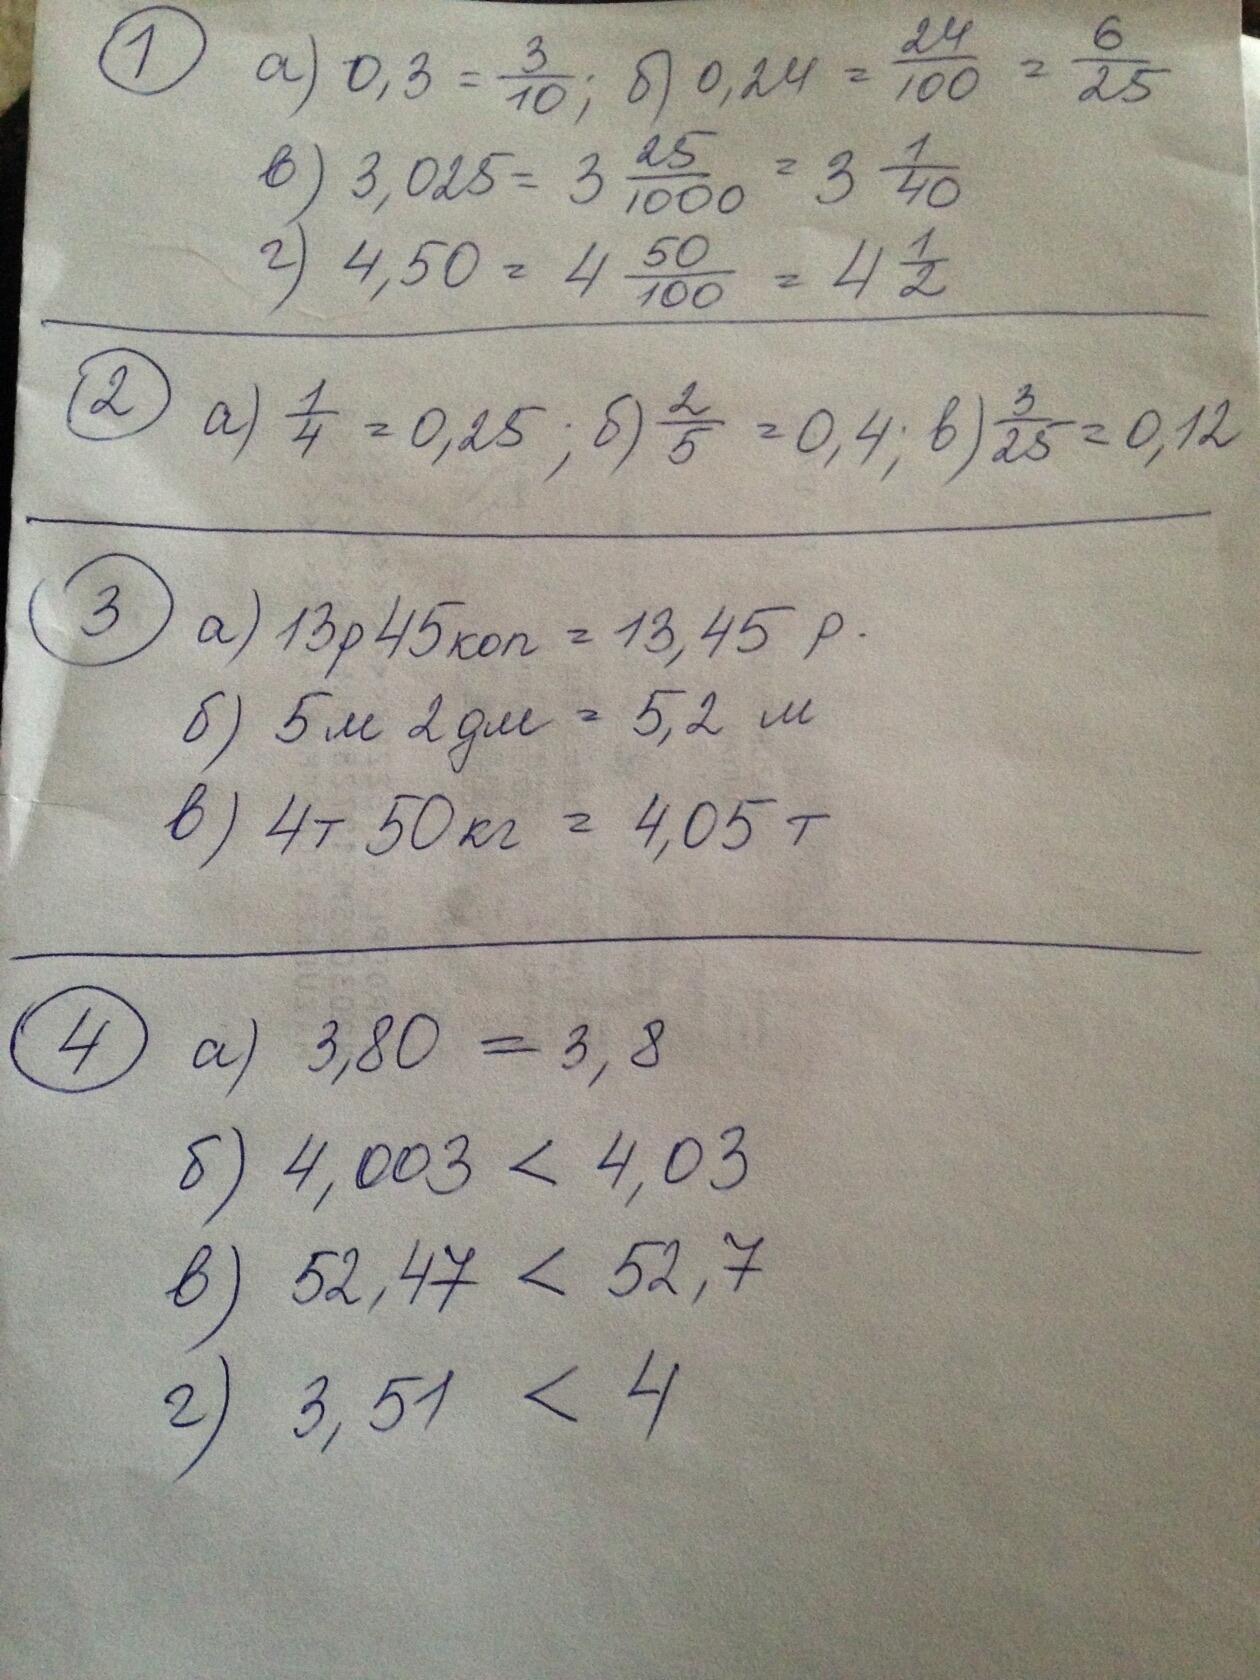 1 а) 0,3 = 3/10; б) 0,24 = 24/100 = 6/25
в) 3,025 = 3 25/1000 = 3 1/40
г) 4,50 = 4 50/100 = 4 1/2
2 а) 1/4 = 0,25; б) 2/5 = 0,4; в) 3/25 = 0,12
3 а) 13р 45коп = 13,45 р.
б) 5м 2дм = 5,2 м
в) 4т 50кг = 4,05 т
4 а) 3,80 = 3,8
б) 4,003 < 4,03
в) 52,47 < 52,7
г) 3,51 < 4